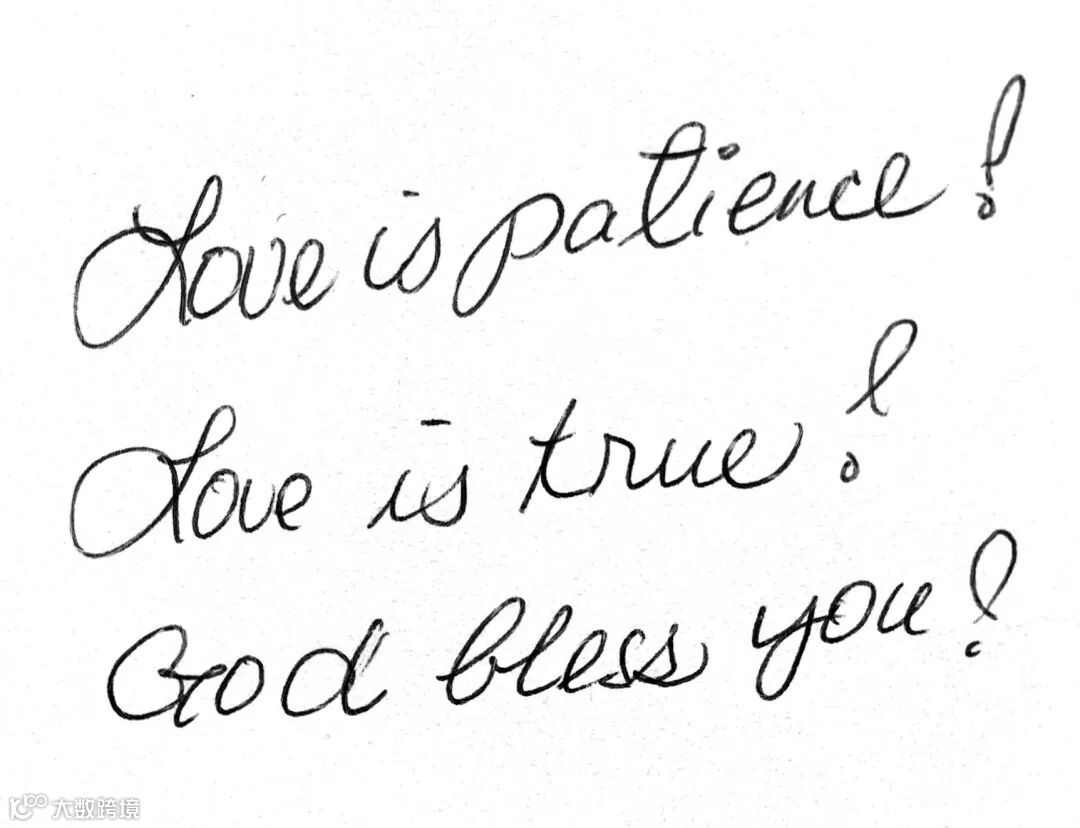 Love is patience!
Love is true!
God bless you!
大数跨境